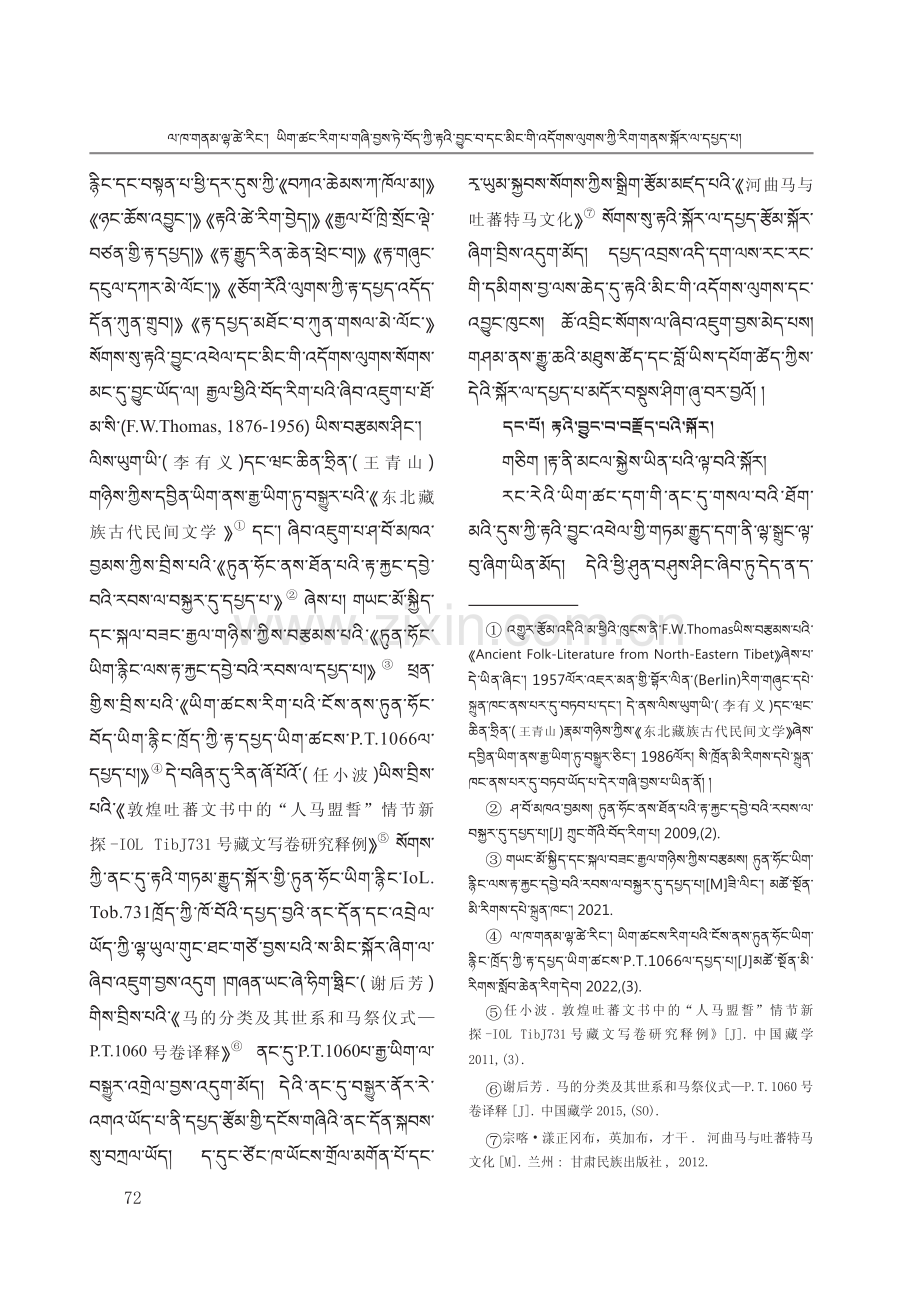 ལ་ཁ་གནམ་ལྷ་ཚེ་རིང་། ཡིག་ཚང་རིག་པ་གཞི་བྱས་ཏེ་བོད་ཀྱི་རྟའི་བྱུང་བ་དང་མིང་གི་འདོགས་ལུགས་ཀྱི་རིག་གནས་སྐོར་ལ་དཔྱད་པ།
རྙིང་དང་བསྟན་པ་ཕྱི་དར་དུས་ཀྱི་《བཀའ་ཆེམས་ཀ་ཁོལ་མ།》
《ཉང་ཆོས་འབྱུང་།》《རྟའི་ཚེ་རིག་བྱེད།》《རྒྱལ་པོ་ཁྲི་སྲོང་ལྡེ་
བཙན་གྱི་རྟ་དཔྱད།》《རྟ་རྒྱུད་རིན་ཆེན་ཕྲེང་བ།》《རྟ་གཞུང་
དངུལ་དཀར་མེ་ལོང་།》《ཅོག་རོའི་ལུགས་ཀྱི་རྟ་དཔྱད་འདོད་
དོན་ཀུན་གྲུབ།》《རྟ་དཔྱད་མཐོང་བ་ཀུན་གསལ་མེ་ལོང་》
སོགས་སུ་རྟའི་བྱུང་འཕེལ་དང་མིང་གི་འདོགས་ལུགས་སོགས་
མང་དུ་བྱུང་ཡོད་ལ། རྒྱལ་ཕྱིའི་བོད་རིག་པའི་ཞིབ་འཇུག་པ་ཐོ་
མ་སི་(F.W.Thomas, 1876-1956) ཡིས་བརྩམས་ཤིང་།
ལིས་ཡུག་ཡི་(李有义)དང་ཝང་ཆིན་ཧྲིན་(王青山)
གཉིས་ཀྱིས་དབྱིན་ཡིག་ནས་རྒྱ་ཡིག་ཏུ་བསྒྱུར་པའི་《东北藏
族古代民间文学》① དང་། ཞིབ་འཇུག་པ་ཤ་བོ་མཁའ་
བྱམས་ཀྱིས་བྲིས་པའི་《ཏུན་ཧོང་ནས་ཐོན་པའི་རྟ་རྐྱང་དབྱེ་
བའི་རབས་ལ་བསྐྱར་དུ་དཔྱད་པ་》② ཞེས་པ། གཡང་མོ་སྐྱིད་
དང་སྐལ་བཟང་རྒྱལ་གཉིས་ཀྱིས་བརྩམས་པའི་《ཏུན་ཧོང་
ཡིག་རྙིང་ལས་རྟ་རྐྱང་དབྱེ་བའི་རབས་ལ་དཔྱད་པ།》③ ཕྲན་
གྱིས་བྲིས་པའི་《ཡིག་ཚངས་རིག་པའི་ངོས་ནས་ཏུན་ཧོང་
བོད་ཡིག་རྙིང་ཁྲོད་ཀྱི་རྟ་དཔྱད་ཡིག་ཚངས་P.T.1066ལ་
དཔྱད་པ།》④ དེ་བཞིན་དུ་རིན་ཞོ་པོའོ་(任小波)ཡིས་བྲིས་
པའི་《敦煌吐蕃文书中的“人马盟誓”情节新
探-IOL TibJ731 号藏文写卷研究释例》⑤ སོགས་
ཀྱི་ནང་དུ་རྟའི་གཏམ་རྒྱུད་སྐོར་གྱི་ཏུན་ཧོང་ཡིག་རྙིང་IoL.
Tob.731ཁྲོད་ཀྱི་ཁོ་བོའི་དཔྱད་བྱའི་ནང་དོན་དང་འབྲེལ་
ཡོད་ཀྱི་ལྷ་ཡུལ་གུང་ཐང་གཙོ་བྱས་པའི་ས་མིང་སྐོར་ཞིག་ལ་
ཞིབ་འཇུག་བྱས་འདུག །གཞན་ཡང་ཞེ་ཧིག་སྥིང་(谢后芳)
གིས་བྲིས་པའི་《马的分类及其世系和马祭仪式—
P.T.1060 号卷译释》⑥ ནང་དུ་P.T.1060པ་རྒྱ་ཡིག་ལ་
བསྒྱུར་འགྲེལ་བྱས་འདུག་མོད། དེའི་ནང་དུ་བསྒྱུར་ནོར་རེ་
འགའ་ཡོད་པ་ནི་དཔྱད་རྩོམ་གྱི་དངོས་གཞིའི་ནང་དོན་སྐབས་
སུ་བཀྲལ་ཡོད། ད་དུང་ཙོང་ཁ་ཡོངས་གྲོལ་མགོན་པོ་དང་
ར་ཡུམ་སྐྱབས་སོགས་ཀྱིས་སྒྲིག་རྩོམ་མཛད་པའི་《河曲马与
吐蕃特马文化》⑦ སོགས་སུ་རྟའི་སྐོར་ལ་དཔྱད་རྩོམ་སྐོར་
ཞིག་བྲིས་འདུག་མོད། དཔྱད་འབྲས་འདི་དག་ལས་རང་རང་
གི་དམིགས་བྱ་ལས་ཆེད་དུ་རྟའི་མིང་གི་འདོགས་ལུགས་དང་
འབྱུང་ཁུངས། ཆོ་འབྲིང་སོགས་ལ་ཞིབ་འཇུག་བྱས་མེད་པས།
གཤམ་ནས་རྒྱུ་ཆའི་མཐུས་ཚོད་དང་བློ་ཡིས་དཔོག་ཚོད་ཀྱིས་
དེའི་སྐོར་ལ་དཔྱད་པ་མདོར་བསྡུས་ཤིག་ཞུ་བར་བྱའོ། །
དང་པོ། རྟའི་བྱུང་བ་བརྗོད་པའི་སྐོར།
གཅིག །རྟ་ནི་མངལ་སྐྱེས་ཡིན་པའི་ལྟ་བའི་སྐོར།
རང་རེའི་ཡིག་ཚང་དག་གི་ནང་དུ་གསལ་བའི་ཐོག་
མའི་དུས་ཀྱི་རྟའི་བྱུང་འཕེལ་གྱི་གཏམ་རྒྱུད་དག་ནི་ལྷ་སྒྲུང་ལྟ་
བུ་ཞིག་ཡིན་མོད། དེའི་ཕྱི་ཤུན་བཤུས་ཤིང་ཞིབ་ཏུ་དེད་ན་ད་
① འགྱུར་རྩོམ་འདིའི་མ་ཕྱིའི་ཁུངས་ནི་F.W.Thomasཡིས་བརྩམས་པའི་
《Ancient Folk-Literature from North-Eastern Tibet》ཞེས་པ་
དེ་ཡིན་ཞིང་། 1957ལོར་འཇར་མན་གྱི་བྷོར་ལིན་(Berlin)རིག་གཞུང་དཔེ་
སྐྲུན་ཁང་ནས་པར་དུ་བཏབ་པ་དང་། དེ་ནས་ལིས་ཡུག་ཡི་(李有义)དང་ཝང་
ཆིན་ཧྲིན་(王青山)རྣམ་གཉིས་ཀྱིས་《东北藏族古代民间文学》ཞེས་
དབྱིན་ཡིག་ནས་རྒྱ་ཡིག་ཏུ་བསྒྱུར་ཅིང་། 1986ལོར། སི་ཁྲོན་མི་རིགས་དཔེ་སྐྲུན་
ཁང་ནས་པར་དུ་བཏབ་ཡོད་པ་དེར་གཞི་བྱས་པ་ཡིན་ནོ། །
② ཤ་བོ་མཁའ་བྱམས། ཏུན་ཧོང་ནས་ཐོན་པའི་རྟ་རྐྱང་དབྱེ་བའི་རབས་ལ་
བསྐྱར་དུ་དཔྱད་པ།[J] ཀྲུང་གོའི་བོད་རིག་པ། 2009,(2).
③ གཡང་མོ་སྐྱིད་དང་སྐལ་བཟང་རྒྱལ་གཉིས་ཀྱིས་བརྩམས། ཏུན་ཧོང་ཡིག་
རྙིང་ལས་རྟ་རྐྱང་དབྱེ་བའི་རབས་ལ་བསྐྱར་དུ་དཔྱད་པ།[M]ཟི་ལིང་། མཚོ་སྔོན་
མི་རིགས་དཔེ་སྐྲུན་ཁང་། 2021.
④ ལ་ཁ་གནམ་ལྷ་ཚེ་རིང་། ཡིག་ཚངས་རིག་པའི་ངོས་ནས་ཏུན་ཧོང་ཡིག་
རྙིང་ཁྲོད་ཀྱི་རྟ་དཔྱད་ཡིག་ཚངས་P.T.1066ལ་དཔྱད་པ།[J]མཚོ་སྔོན་མི་
རིགས་སློབ་ཆེན་རིག་དེབ། 2022,(3).
⑤任小波．敦煌吐蕃文书中的“人马盟誓”情节新
探-IOL TibJ731 号藏文写卷研究释例》[J]. 中国藏学
2011,(3).
⑥谢后芳．马的分类及其世系和马祭仪式—P.T.1060 号
卷译释[J]. 中国藏学2015,(S0).
⑦宗喀·漾正冈布，英加布，才干． 河曲马与吐蕃特马
文化[M]. 兰州：甘肃民族出版社，2012.
72
www.zixin.com.cn